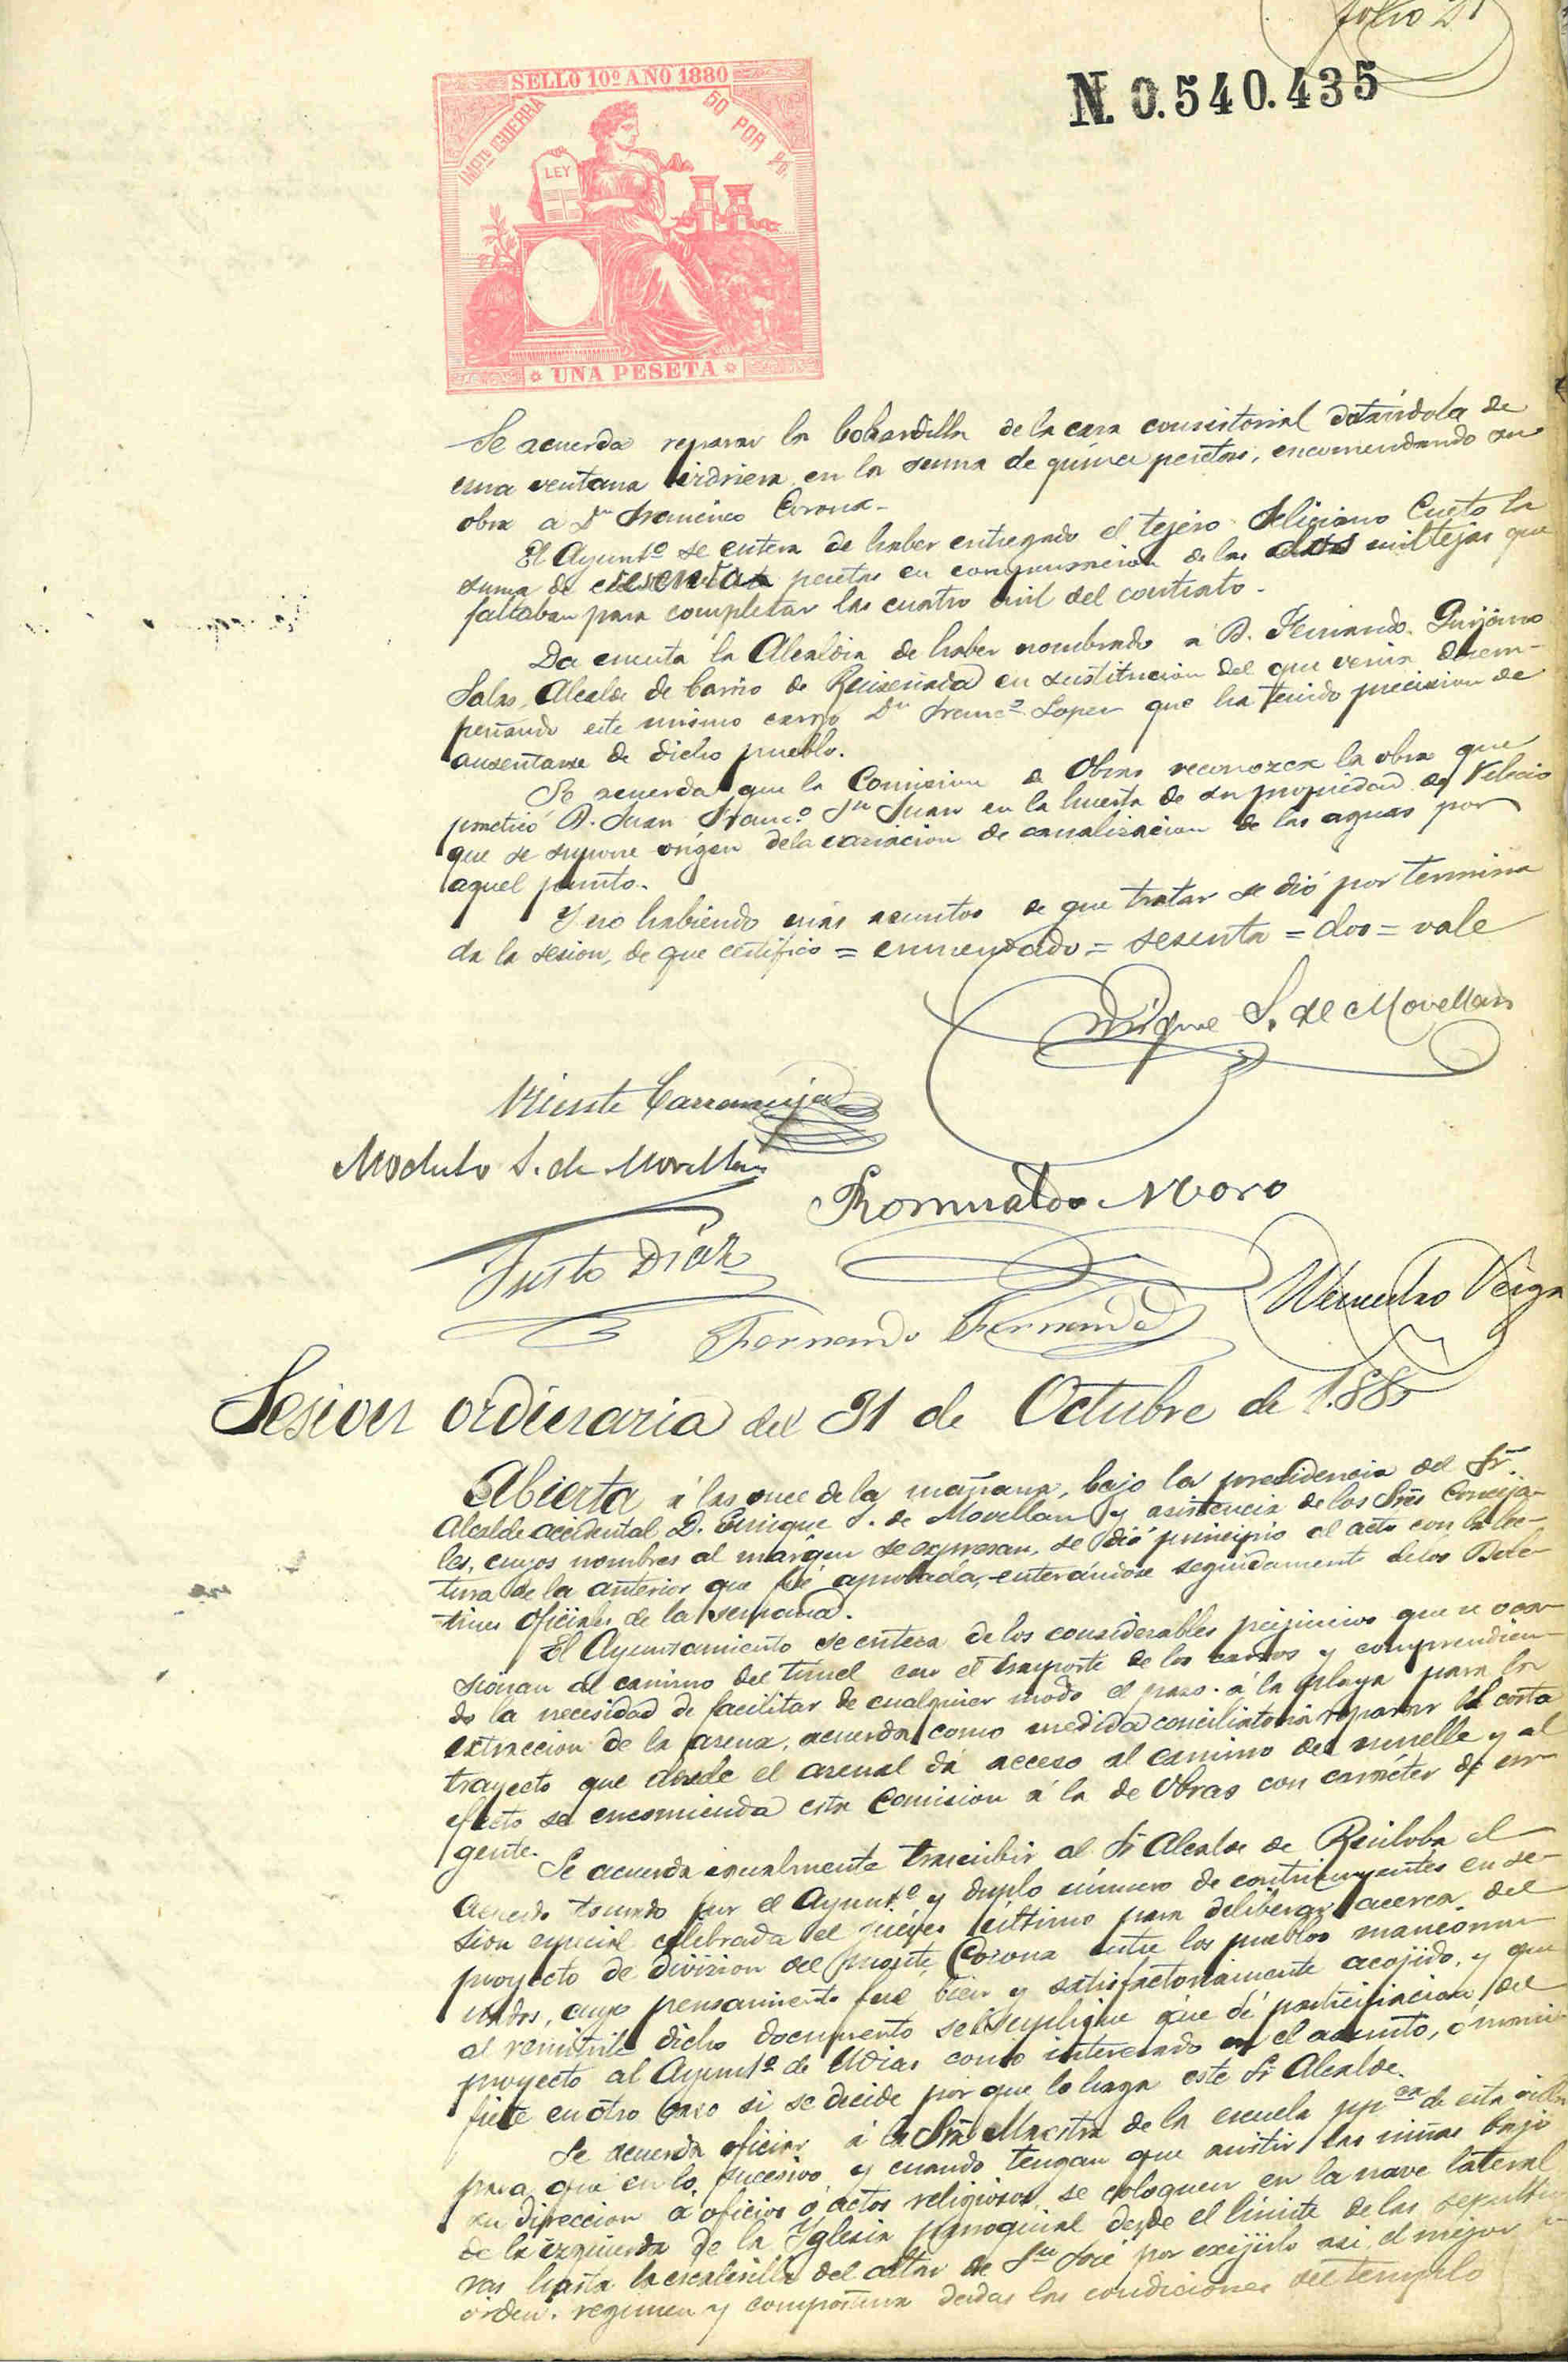 folio 21
N. 0.540.435
SELLO 10º AÑO 1880
IMPto GUERRA 50 POR %
LEY
UNA PESETA
Se acuerda reparar la bohardilla de la casa consistorial dotándola de
una ventana vidriera en la suma de quince pesetas, encomendando su
obra a Dn Francisco Corona.
El Ayuntº se entera de haber entregado el tejero Feliciano Cueto la
suma de sesenta pesetas en compensacion de las dos mil tejas que
faltaban para completar las cuatro mil del contrato.
Da cuenta la Alcaldia de haber nombrado a D. Fernando Quijano
Salas, Alcalde de barrio de Ruiseñada en sustitucion del que venia desem-
peñando este mismo cargo Dn Francº Lopez que ha tenido precision de
ausentarse de dicho pueblo.
Se acuerda que la Comision de Obras reconozca la obra que
practicó D. Juan Francº Sn Juan en la huerta de su propiedad de Velecio
que se supone origen de la variacion de canalizacion de las aguas por
aquel punto.
Y no habiendo más asuntos de que tratar se dió por termina
da la sesion, de que certifico = enmendado = sesenta = dos = vale
Enrique S. de Movellan
Vicente Carranceja
Modesto S. de Movellan
Romualdo Moro
Justo Diaz
Wenceslao Veiga
Fernando Fernandez
Sesion ordinaria del 31 de Octubre de 1.880
Abierta á las once de la mañana, bajo la presidencia del Sr.
Alcalde accidental D. Enrique S. de Movellan y asistencia de los Sres Conceja-
les, cuyos nombres al margen se expresan, se dió principio al acto con la lec-
tura de la anterior que fué aprobada, enterándose seguidamente de los Bole-
tines Oficiales de la semana.
El Ayuntamiento se entera de los considerables perjuicios que se oca-
sionan al camino del tunel con el trasporte de los carros y comprendien-
do la necesidad de facilitar de cualquier modo el paso á la playa para la
extraccion de la arena, acuerda como medida conciliatoria reparar el corto
trayecto que desde el arenal dá acceso al camino del muelle y al
efecto se encomienda esta Comision á la de Obras con carácter de ur-
gente.
Se acuerda igualmente trascribir al Sr Alcalde de Ruiloba el
acuerdo tomado por el Ayuntº y duplo número de contribuyentes en se-
sion especial celebrada el jueves último para deliberar acerca del
proyecto de division del monte Corona entre los pueblos mancomu-
nados, cuyo pensamiento fué bien y satisfactoriamente acojido, y que
al remitirle dicho documento se le suplique que dé participacion del
proyecto al Ayuntº de Udias como interesado en el asunto, ó mani-
fieste en otro caso si se decide por que lo haga este Sr Alcalde.
Se acuerda oficiar á la Sra Maestra de la escuela ppca de esta villa
para que en lo sucesivo y cuando tengan que asistir las niñas bajo
su direccion a oficios ó actos religiosos, se coloquen en la nave lateral
de la izquierda de la Yglesia parroquial desde el límite de las sepultu-
ras hasta la escalerilla del altar de Sn José por exijirlo asi el mejor
órden, regimen y compostura dadas las condiciones del templo